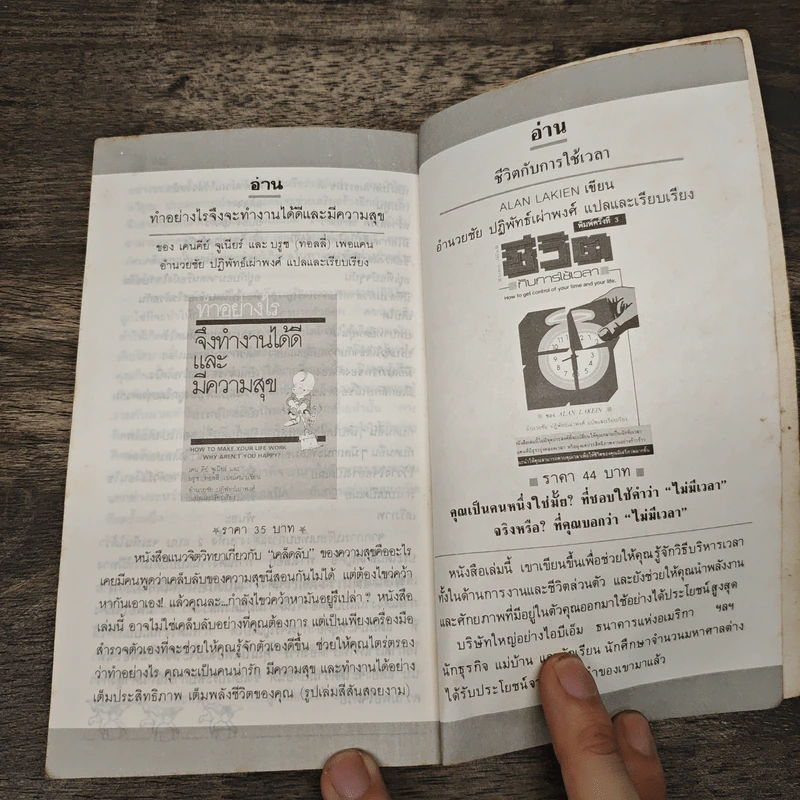 อ่าน
ทำอย่างไรจึงจะทำงานได้ดีและมีความสุข
ของ เคนคีย์ จูเนียร์ และ บรูซ (ทอลลี่) เพอแคน
อำนวยชัย ปฏิพัทธ์เผ่าพงศ์ แปลและเรียบเรียง
ทำอย่างไร
จึงทำงานได้ดี
และ
มีความสุข
HOW TO MAKE YOUR LIFE WORK
WHY AREN'T YOU HAPPY?
เคน คีย์ จูเนียร์ และ
ราคา 35 บาท
หนังสือแนวจิตวิทยาเกี่ยวกับ "เคล็ดลับ" ของความสุขคืออะไร
เคยมีคนพูดว่าเคล็บลับของความสุขนี้สอนกันไม่ได้ แต่ต้องไขว่คว้า
หากันเอาเอง! แล้วคุณละ...กำลังไขว่คว้าหามันอยู่รึเปล่า? หนังสือ
เล่มนี้ อาจไม่ใช่เคล็บลับอย่างที่คุณต้องการ แต่เป็นเพียงเครื่องมือ
สำรวจตัวเองที่จะช่วยให้คุณรู้จักตัวเองดีขึ้น ช่วยให้คุณไตร่ตรอง
ว่าทำอย่างไร คุณจะเป็นคนน่ารัก มีความสุข และทำงานได้อย่าง
เต็มประสิทธิภาพ เต็มพลังชีวิตของคุณ (รูปเล่มสีสันสวยงาม)
อ่าน
ชีวิตกับการใช้เวลา
ALAN LAKIEN เขียน
อำนวยชัย ปฏิพัทธ์เผ่าพงศ์ แปลและเรียบเรียง
พิมพ์ครั้งที่ 3
ชีวิต
กับการใช้เวลา
How to get control of your time and your life.
ของ ALAN LAKEIN
อำนวยชัย ปฏิพัทธ์เผ่าพงศ์ แปลและเรียบเรียง
ราคา 44 บาท
คุณเป็นคนหนึ่งใช่มั้ย? ที่ชอบใช้คำว่า "ไม่มีเวลา"
จริงหรือ? ที่คุณบอกว่า "ไม่มีเวลา"
หนังสือเล่มนี้ เขาเขียนขึ้นเพื่อช่วยให้คุณรู้จักวิธีบริหารเวลา
ทั้งในด้านการงานและชีวิตส่วนตัว และยังช่วยให้คุณนำพลังงาน
และศักยภาพที่มีอยู่ในตัวคุณออกมาใช้อย่างได้ประโยชน์สูงสุด
บริษัทใหญ่อย่างไอบีเอ็ม ธนาคารแห่งอเมริกา ฯลฯ
นักธุรกิจ แม่บ้าน นักศึกษาจำนวนมหาศาลต่าง
ได้รับประโยชน์ ของเขามาแล้ว